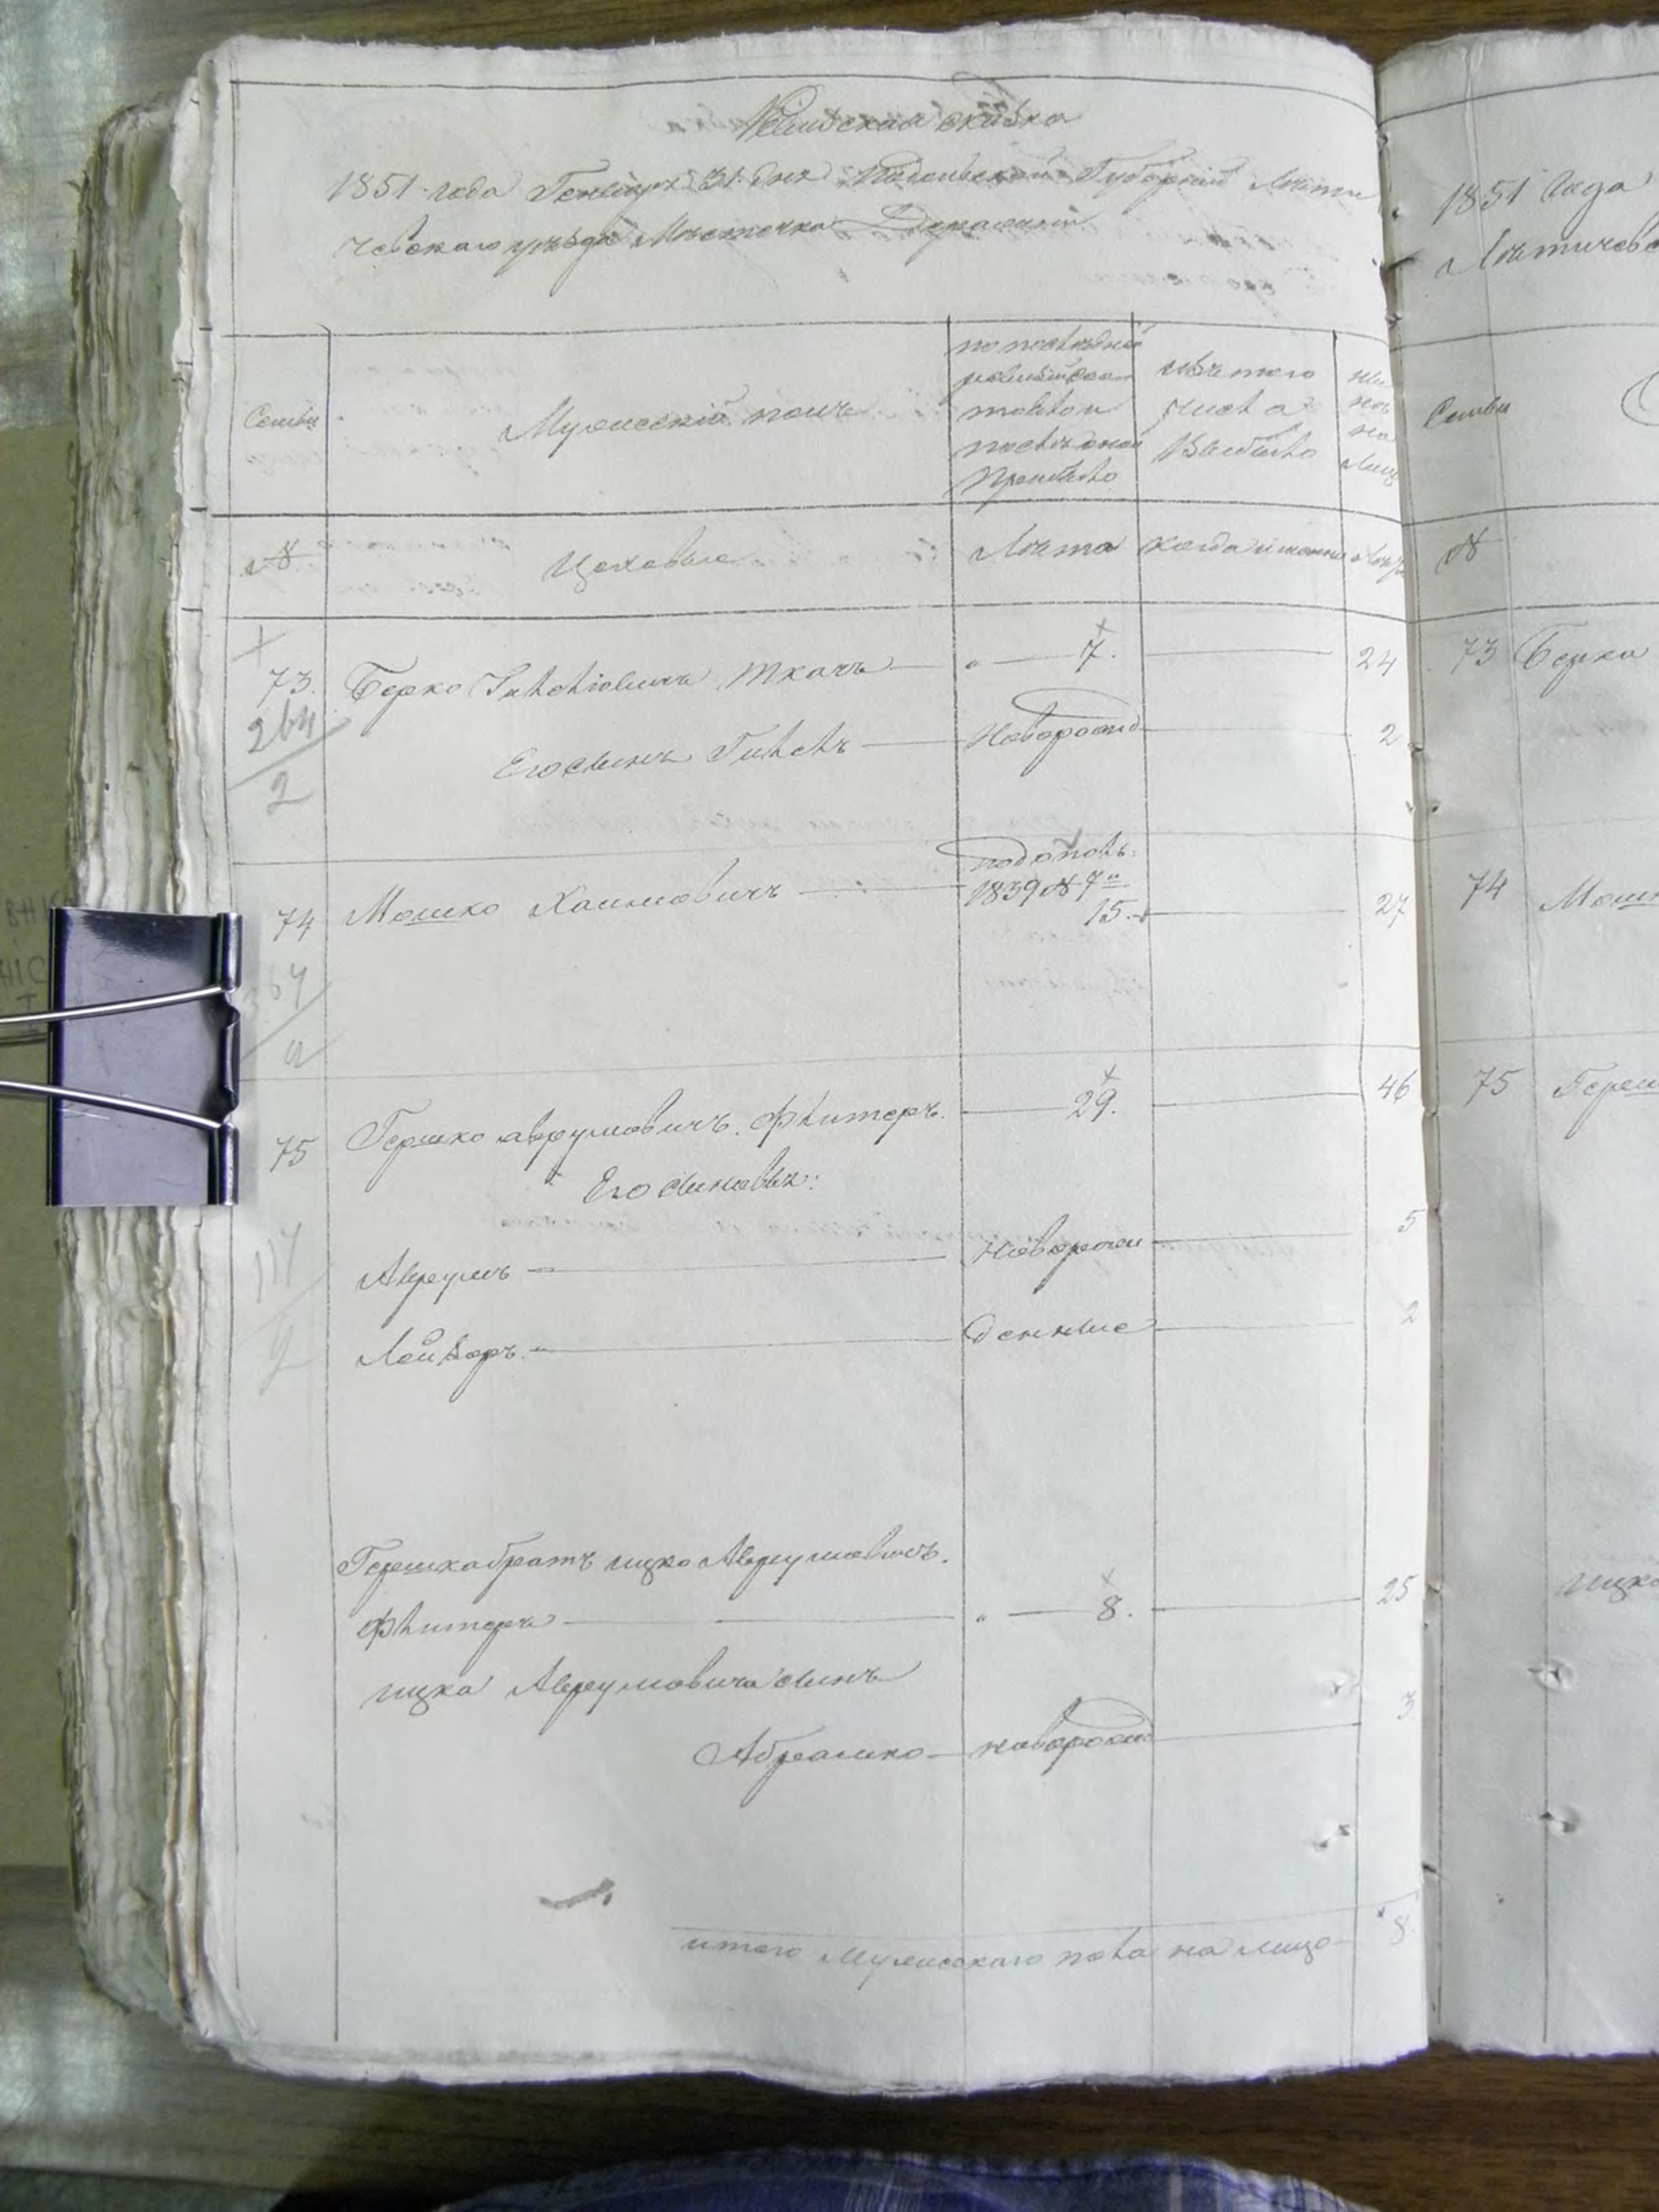 Ревизская сказка
1851 года Генваря 31 дня Подольской Губернии Лѣти
чевскаго уѣзда Мѣстечка Деражни
Семьи
Мужескій полъ
по послѣдней
ревизіи со
стояло и
послѣ оной
Прибыло
изъ того
числа
Выбыло
ны
нѣ
на
лицо
№
Цеховые
Лѣта
Когда именно
Лѣта
73.
Берко Гилеліовичъ Ткачъ
" 7.
24
264
2
Его сынъ Гилель
Новорожд
2
74
Мошко Хаимовичъ
1839 № 7
15.
27
64
75
Гершко Аврумовичъ Флитеръ.
29.
46
Его сыновья:
Аврумъ
Новорожд
5
Лейзоръ
денные
2
Гершка братъ Ицко Аврумовичъ.
Флитеръ
" 8.
25
Ицка Аврумовича сынъ
Абрамко
новорожд
3
итого Мужескаго пола на лицо
8.
1851 года
Лѣтичевс
Семьи
№
73 Берка
74
75
Ицко